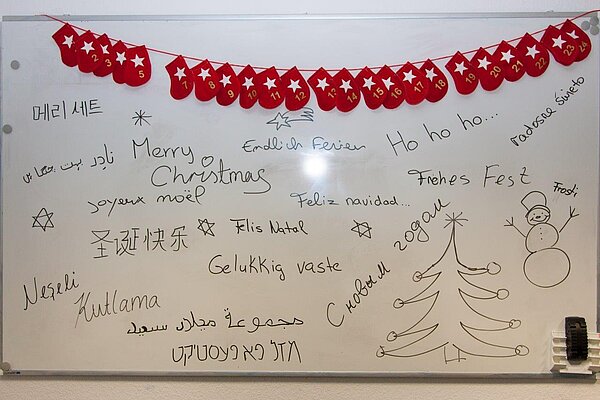 2 3 5 7 8 9 10 11 12 13 14 15 16 17 18 19 20 21 22 23 24
메리 세트
Endlich Ferien
Ho ho ho...
radosne święto
Merry
Christmas
joyeux noël
Feliz navidad...
Frohes Fest
Frosti
圣诞快乐
Felis Natal
С новым годом
Gelukkig vaste
Neşeli
Kutlama
مجموعة ميلاد سعيد